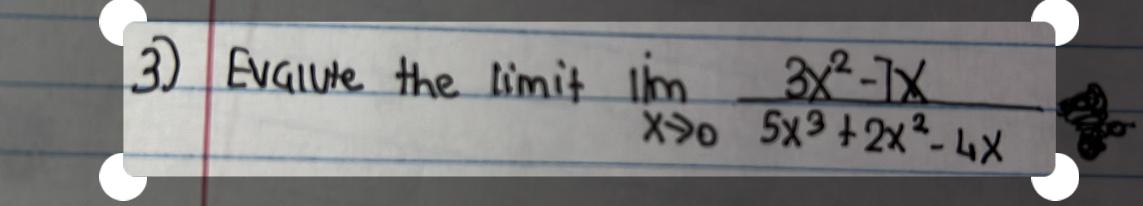 3) Evalute the limit lim 3x² -7x
x→0 5x³ + 2x² - 4x